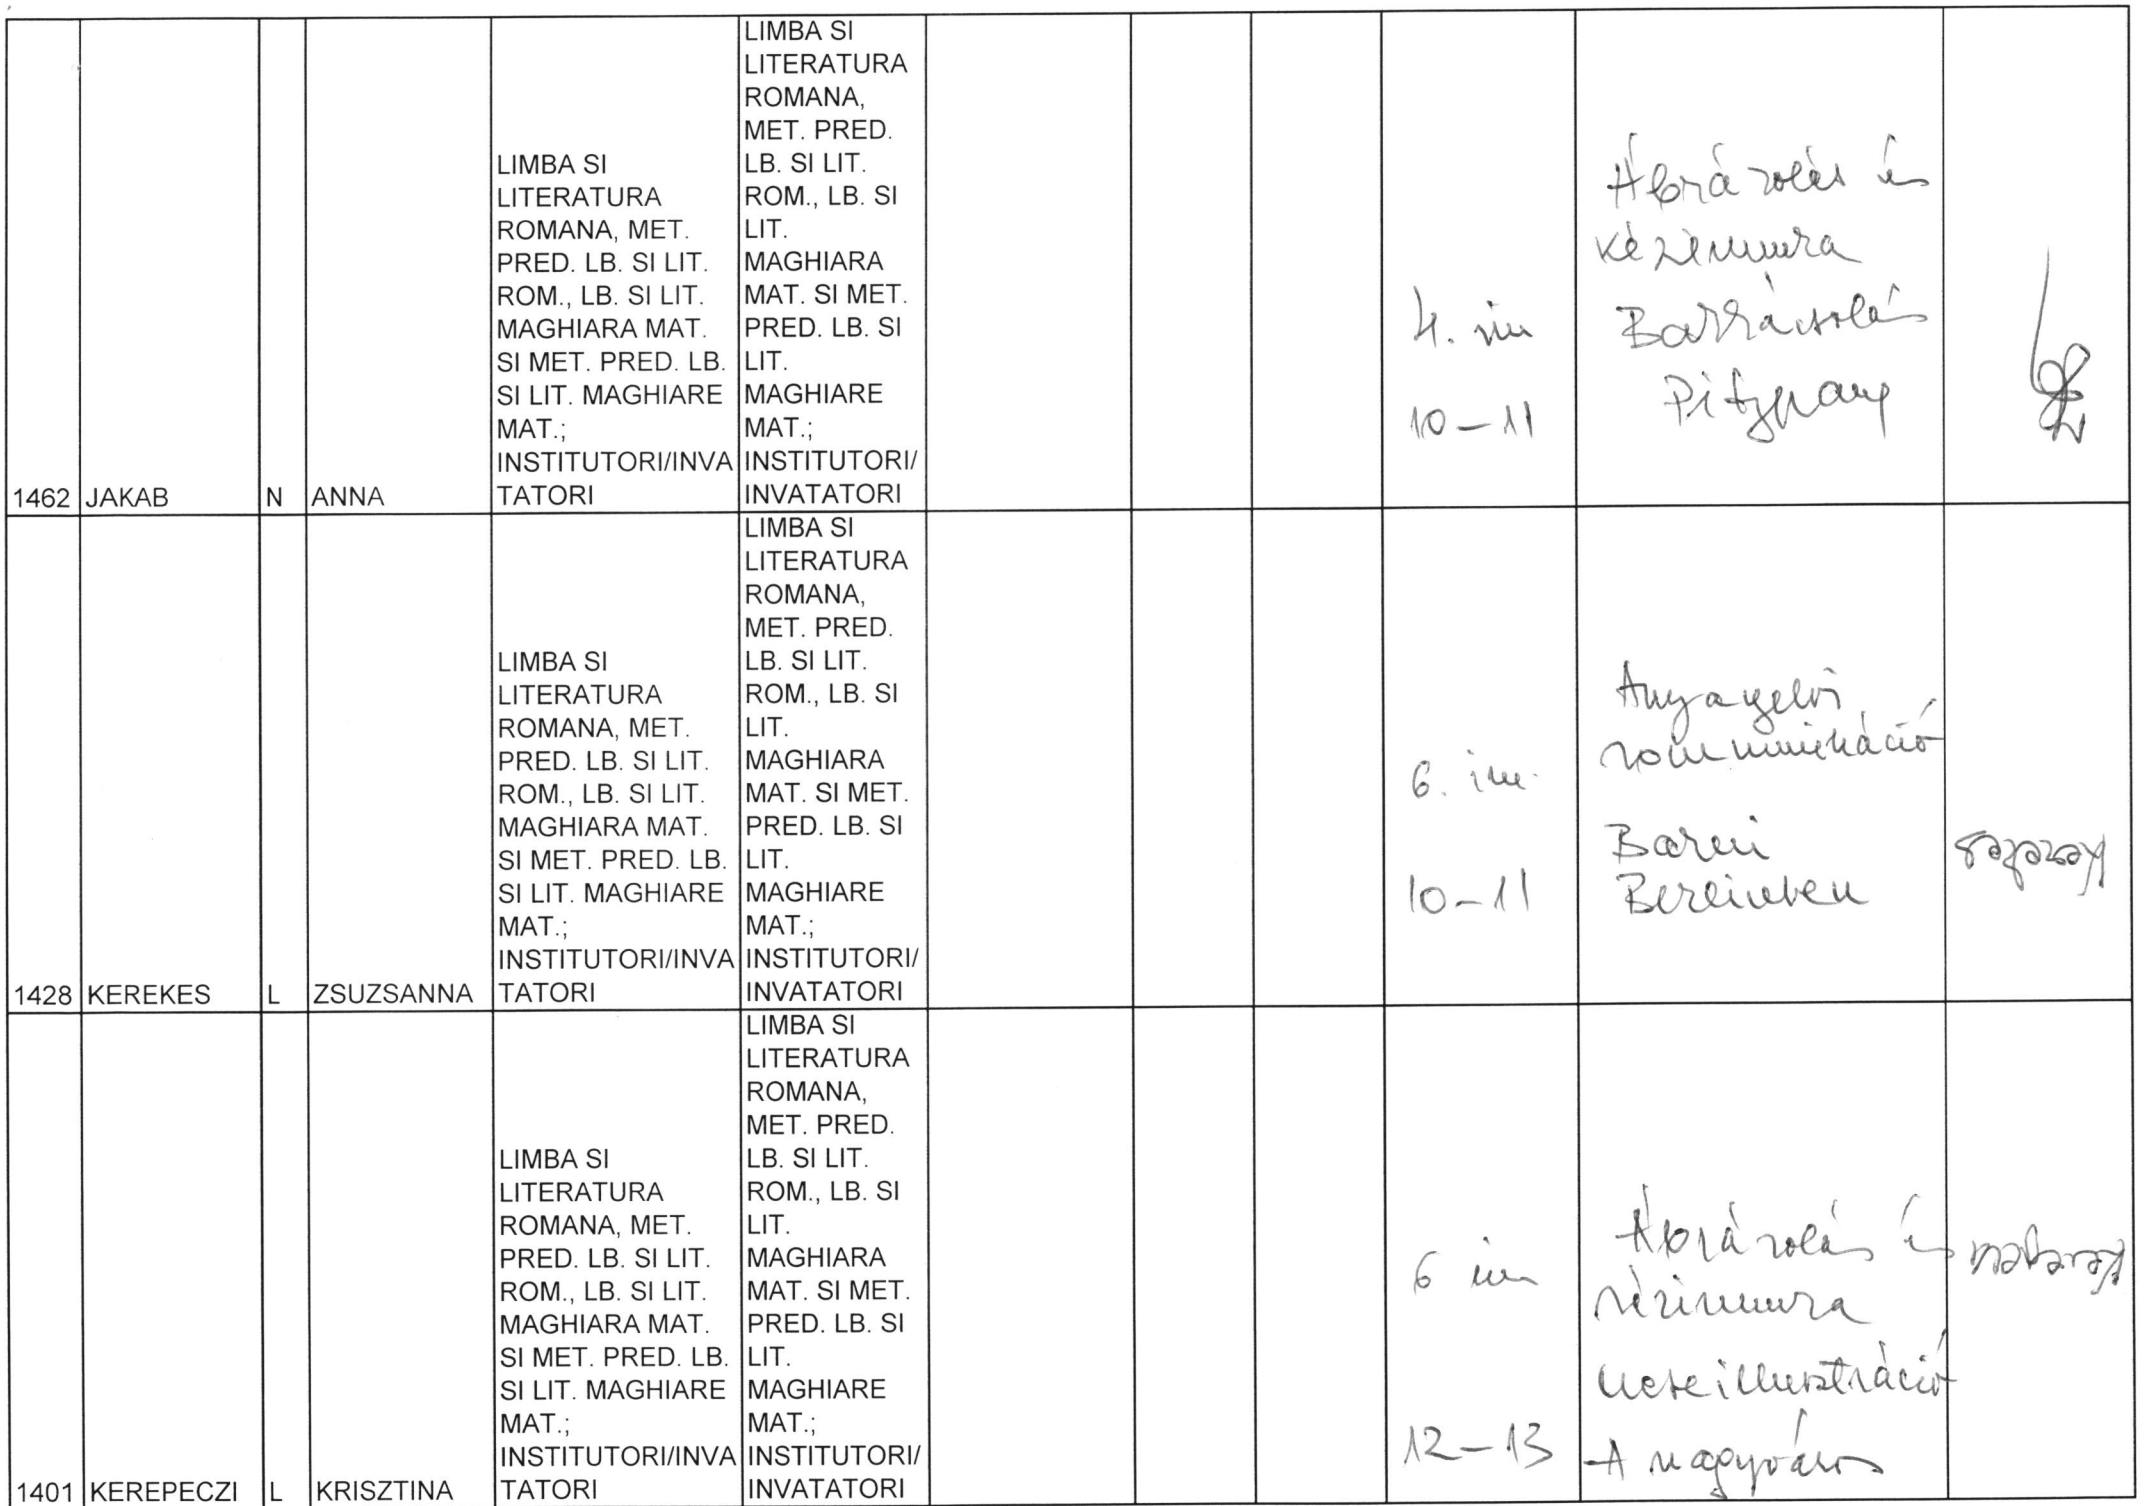 1462
JAKAB
N
ANNA
LIMBA SI
LITERATURA
ROMANA, MET.
PRED. LB. SI LIT.
ROM., LB. SI LIT.
MAGHIARA MAT.
SI MET. PRED. LB.
SI LIT. MAGHIARE
MAT.;
INSTITUTORI/INVA
TATORI
LIMBA SI
LITERATURA
ROMANA,
MET. PRED.
LB. SI LIT.
ROM., LB. SI
LIT.
MAGHIARA
MAT. SI MET.
PRED. LB. SI
LIT.
MAGHIARE
MAT.;
INSTITUTORI/
INVATATORI
4.
10-11
Ábrázolás és
kézimunka
Barkácsolás
Pitypang
1428
KEREKES
L
ZSUZSANNA
LIMBA SI
LITERATURA
ROMANA, MET.
PRED. LB. SI LIT.
ROM., LB. SI LIT.
MAGHIARA MAT.
SI MET. PRED. LB.
SI LIT. MAGHIARE
MAT.;
INSTITUTORI/INVA
TATORI
LIMBA SI
LITERATURA
ROMANA,
MET. PRED.
LB. SI LIT.
ROM., LB. SI
LIT.
MAGHIARA
MAT. SI MET.
PRED. LB. SI
LIT.
MAGHIARE
MAT.;
INSTITUTORI/
INVATATORI
6.
10-11
Anyanyelvi
kommunikáció
Kerekes
1401
KEREPECZI
L
KRISZTINA
LIMBA SI
LITERATURA
ROMANA, MET.
PRED. LB. SI LIT.
ROM., LB. SI LIT.
MAGHIARA MAT.
SI MET. PRED. LB.
SI LIT. MAGHIARE
MAT.;
INSTITUTORI/INVA
TATORI
LIMBA SI
LITERATURA
ROMANA,
MET. PRED.
LB. SI LIT.
ROM., LB. SI
LIT.
MAGHIARA
MAT. SI MET.
PRED. LB. SI
LIT.
MAGHIARE
MAT.;
INSTITUTORI/
INVATATORI
6
12-13
Ábrázolás és
kézimunka
Meseillusztráció
A nagyváros